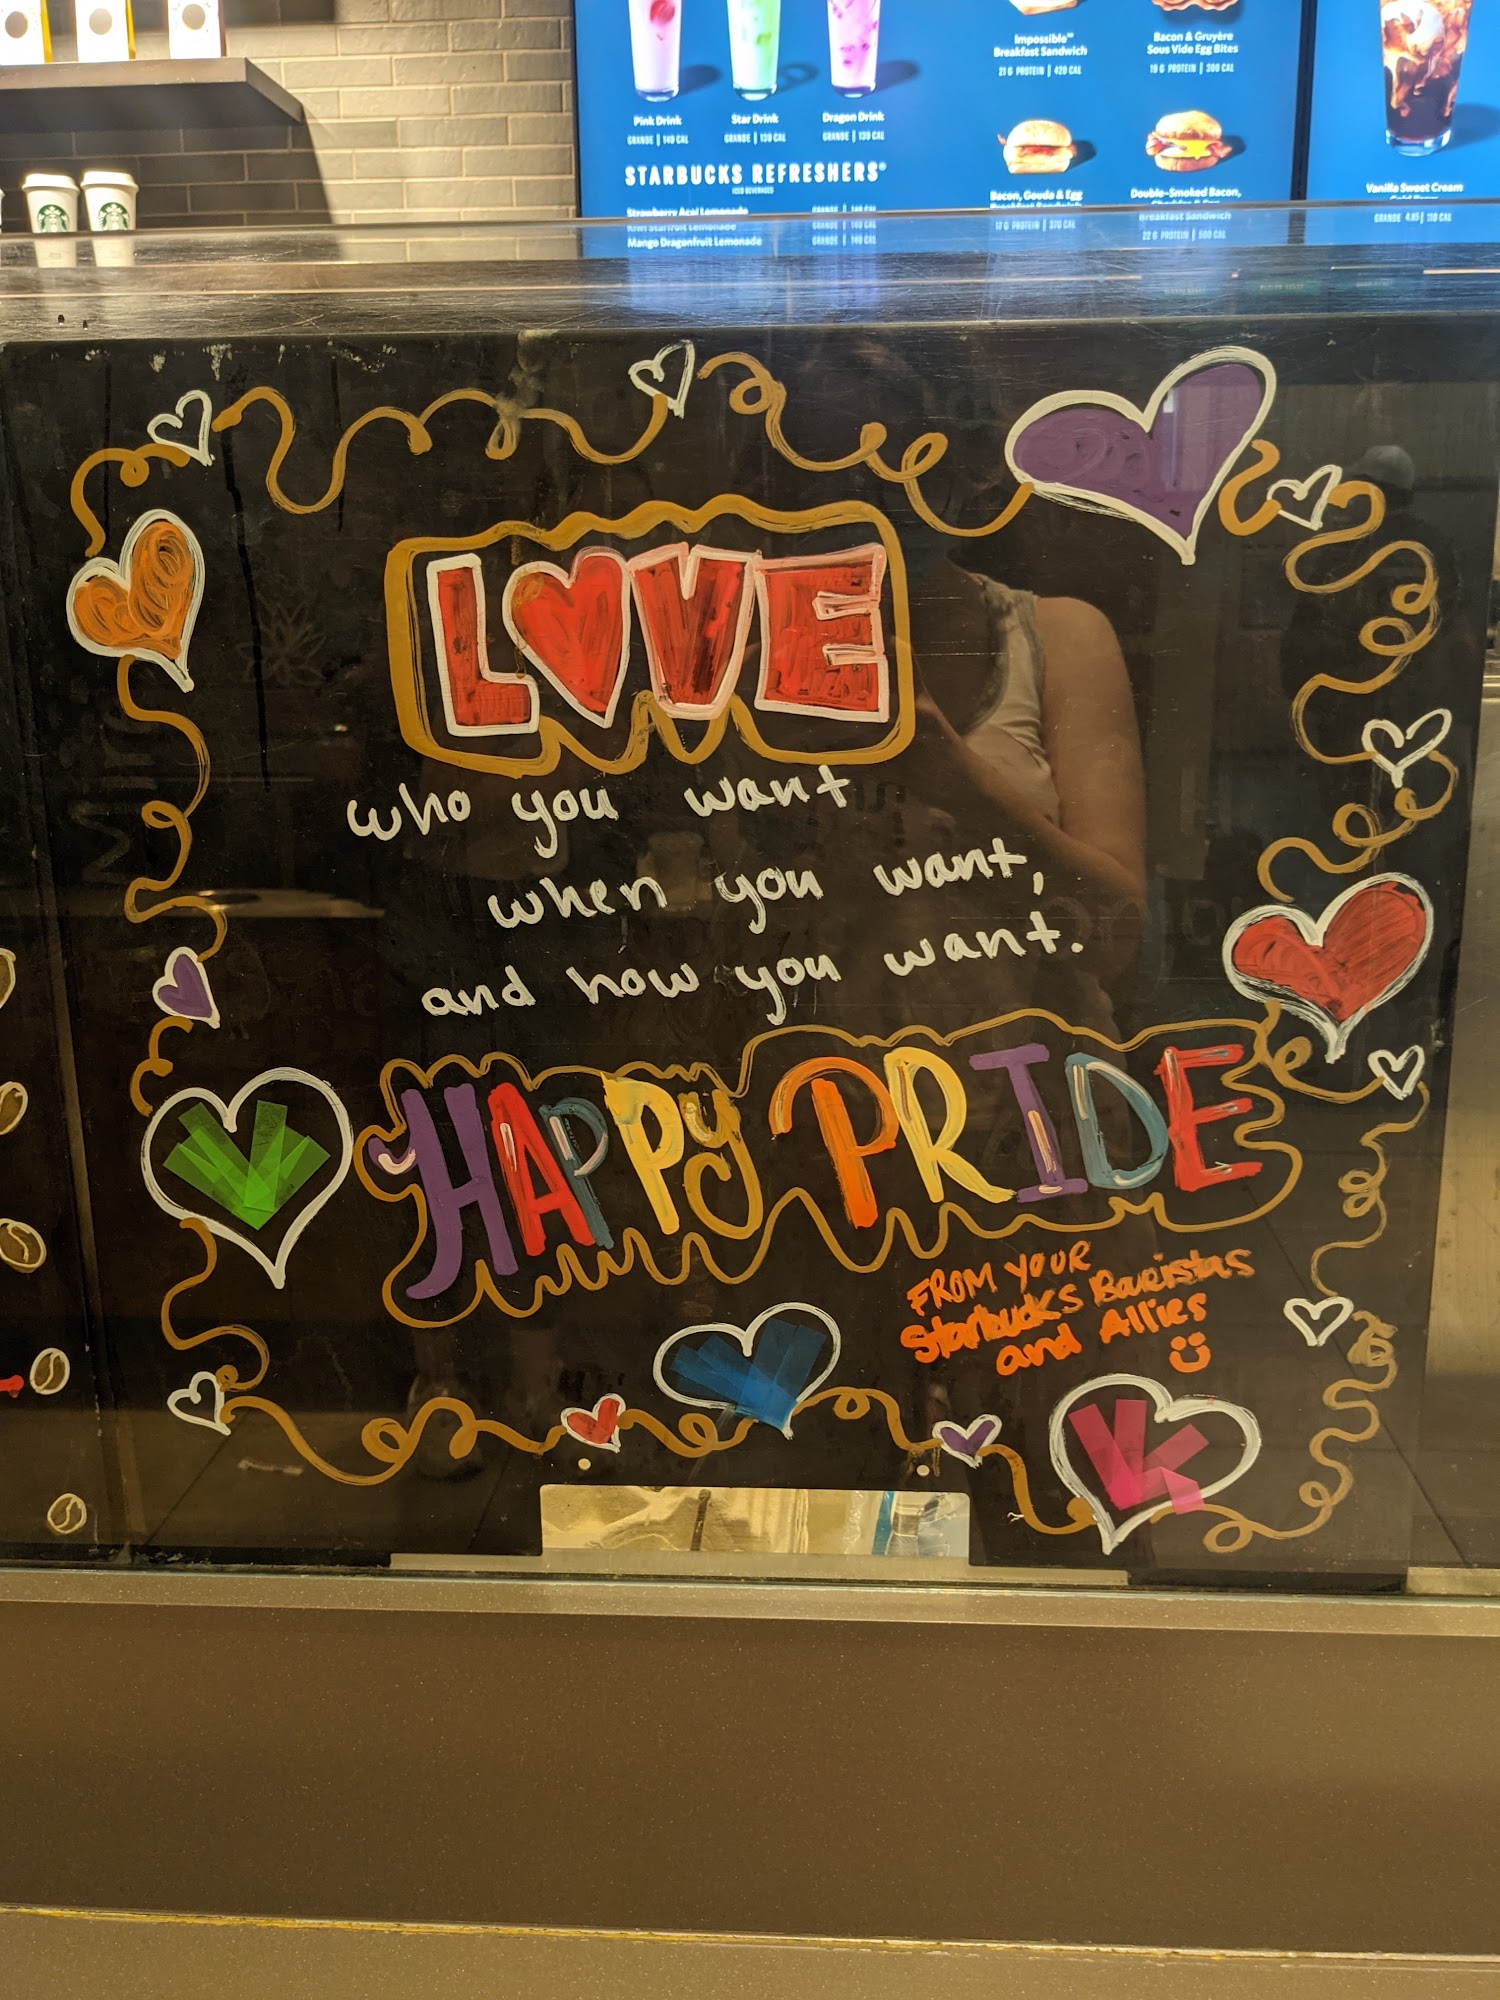 Pink Drink
GRANDE | 140 CAL
Star Drink
GRANDE | 130 CAL
Dragon Drink
GRANDE | 130 CAL
STARBUCKS REFRESHERS®
ICED BEVERAGES
Strawberry Açaí Lemonade
GRANDE | 140 CAL
Kiwi Starfruit Lemonade
GRANDE | 140 CAL
Mango Dragonfruit Lemonade
GRANDE | 140 CAL
Impossible™
Breakfast Sandwich
21 G PROTEIN | 420 CAL
Bacon & Gruyère
Sous Vide Egg Bites
19 G PROTEIN | 300 CAL
Bacon, Gouda & Egg
Breakfast Sandwich
Double-Smoked Bacon,
Cheddar & Egg
Breakfast Sandwich
22 G PROTEIN | 500 CAL
Vanilla Sweet Cream
Cold Brew
LOVE
who you want
when you want,
and how you want.
HAPPY PRIDE
FROM YOUR
Starbucks Baristas
and Allies